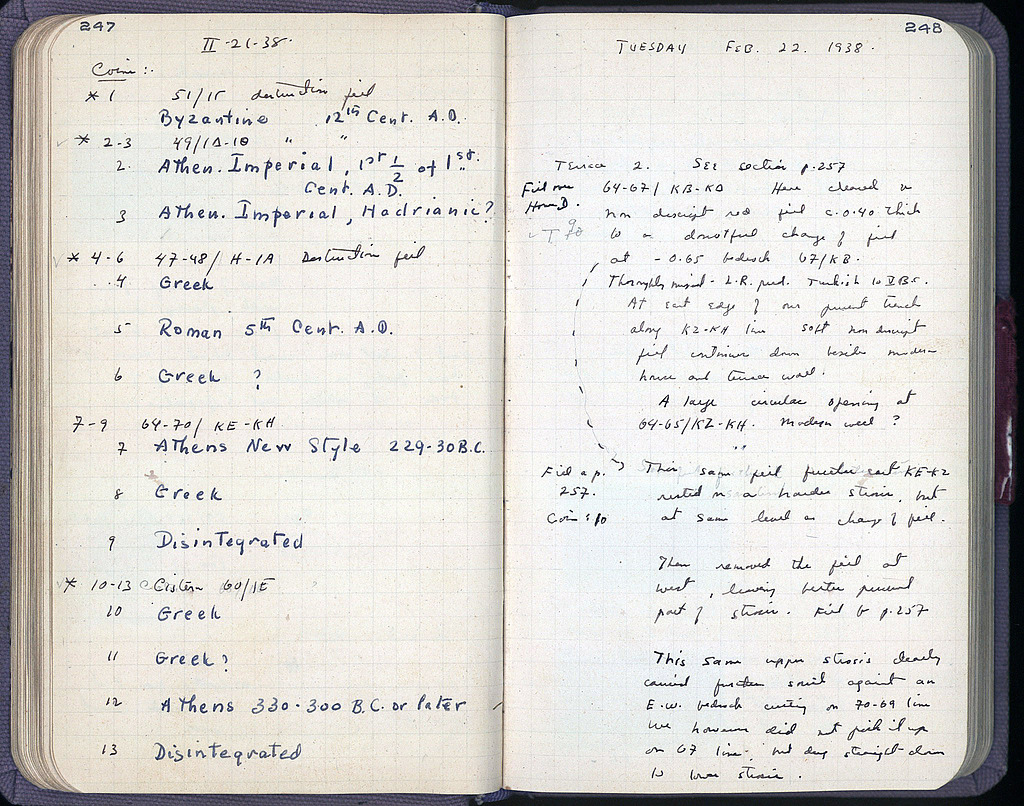 247
II-21-38.
Coins:
* 1 51/IE destruction fill
Byzantine 12th Cent. A.D.
* 2-3 49/IA-IΘ " "
2. Athen. Imperial, 1st 1/2 of 1st
Cent. A.D.
3 Athen. Imperial, Hadrianic?
* 4-6 47-48/H-IA Destruction fill
4 Greek
5 Roman 5th Cent. A.D.
6 Greek ?
7-9 64-70/KE-KH
7 Athens New Style 229-30 B.C.
8 Greek
9 Disintegrated
* 10-13 Cistern 60/IE
10 Greek
11 Greek?
12 Athens 330-300 B.C. or later
13 Disintegrated
248
TUESDAY FEB. 22. 1938.
Terrace 2. See section p.257
Fill over 64-67/KB-KΘ Here cleared a
House D. non descript red fill c. 0.40 thick
to a doubtful change of fill
at -0.65 bedrock 67/KB.
Thoroughly mixed - L.R. pred. Turkish to V B.C.
At east edge of our present trench
along KZ-KH line soft non descript
fill continues down beside modern
house and terrace wall.
A large circular opening at
64-65/KZ-KH. Modern well ?
Fill a p. This same fill further east KE-KZ
257. rested on a harder strosis, but
Coins: 10 at same level as change of fill.
Then removed the fill at
west, leaving better preserved
part of strosis. Fill b p.257
This same upper strosis clearly
carried further south against an
E.W. bedrock cutting on 70-69 line
We however did not pick it up
on 67 line but dug straight down
to lower strosis.